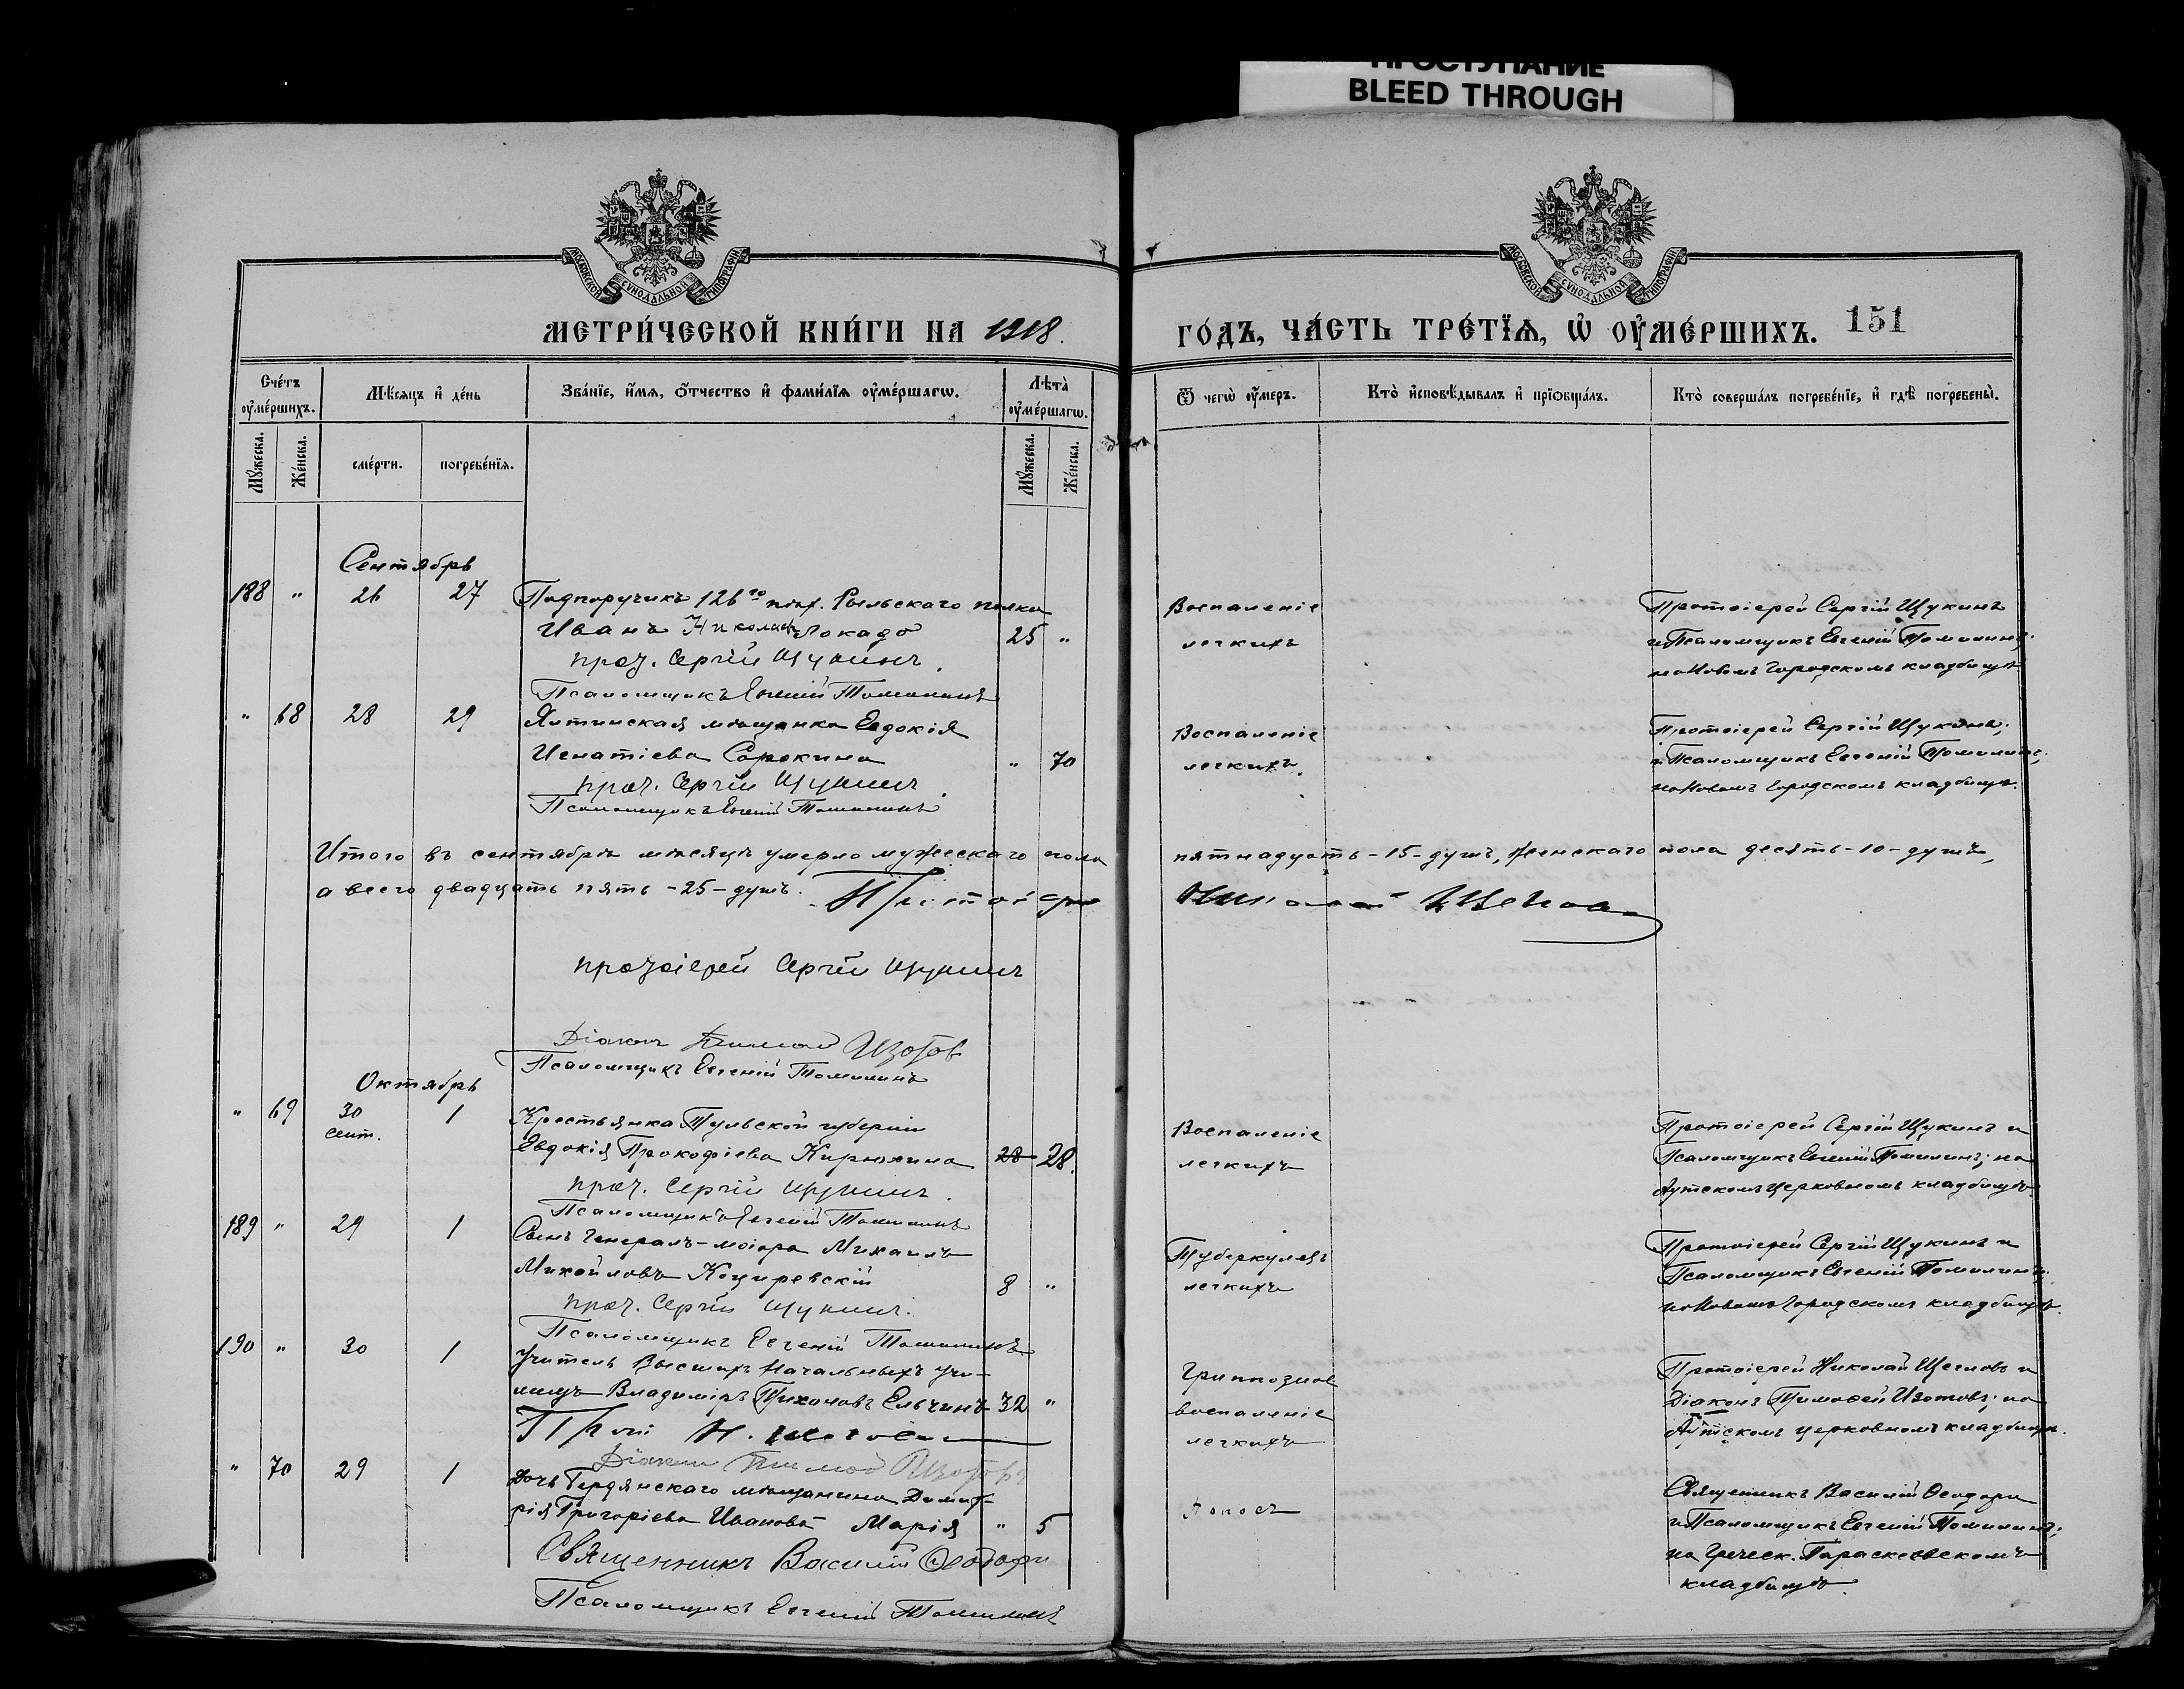 ПРОСТУПАНИЕ
BLEED THROUGH
МОСКОВСКОЙ СУНОДАЛЬНОЙ ТИПОГРАФІИ
МОСКОВСКОЙ СУНОДАЛЬНОЙ ТИПОГРАФІИ
МЕТРИ́ЧЕСКОЙ КНИ́ГИ НА 1918.
ГО́ДЪ, ЧА́СТЬ ТРЕ́ТЇѦ, Ѡ҆ ОУ҆МЕ́РШИХЪ. 151
Сче́тъ оу҆ме́ршихъ.
Мѣ́сяцъ и҆ де́нь
Зва́нїе, и҆́мѧ, ѻ҆́тчество и҆ фами́лїѧ оу҆ме́ршагѡ.
Лѣ́та оу҆ме́ршагѡ.
Ѿ чегѡ̀ оу҆́меръ.
Кто̀ и҆сповѣ́дывалъ и҆ прїѡбща́лъ.
Кто̀ соверша́лъ погребе́нїе, и҆ гдѣ̀ погребены̀.
Мꙋ́жеска.
Же́нска.
сме́рти.
погребе́нїѧ.
Мꙋ́жеска.
Же́нска.
Сентябрь
188 " 26 27 Подпоручикъ 126го пѣх. Рыльскаго полка
Иванъ Николаев Локадо 25 "
прот. Сергій Щукинъ.
Псаломщикъ Евгеній Томилинъ
Воспаленіе
легкихъ
Протоіерей Сергій Щукинъ
и Псаломщикъ Евгеній Томилинъ;
на Новомъ Городскомъ кладбищѣ
" 68 28 29 Ялтинская мѣщанка Евдокія
Игнатіева Сорокина " 70
прот. Сергій Щукинъ.
Псаломщикъ Евгеній Томилинъ
Воспаленіе
легкихъ.
Протоіерей Сергій Щукинъ;
и Псаломщикъ Евгеній Томилинъ;
на Новомъ Городскомъ кладбищѣ.
Итого въ сентябрѣ мѣсяцѣ умерло мужескаго пола пятнадцать -15- душъ, женскаго пола десять -10- душъ,
а всего двадцать пять -25- душъ. Протоіерей Николай Щегловъ
протоіерей Сергій Щукинъ
Діаконъ Тимофей Изотовъ
Псаломщикъ Евгеній Томилинъ
Октябрь
" 69 30 1 Крестьянка Тульской губерніи
сент.
Евдокія Прокофіева Кирюхина 28 28.
прот. Сергій Щукинъ.
Псаломщикъ Евгеній Томилинъ
Воспаленіе
легкихъ
Протоіерей Сергій Щукинъ и
Псаломщикъ Евгеній Томилинъ; на
Аутскомъ церковномъ кладбищѣ.
189 " 29 1 Сынъ Генералъ-маіора Михаилъ
Михайловъ Коцыревскій 8 "
прот. Сергій Щукинъ.
Псаломщикъ Евгеній Томилинъ
Туберкулезъ
легкихъ
Протоіерей Сергій Щукинъ и
Псаломщикъ Евгеній Томилинъ;
на Новомъ Городскомъ кладбищѣ.
190 " 30 1 Учитель Высшихъ Начальныхъ Учи-
лищъ Владиміръ Тихоновъ Ельчинъ 32 "
Прот. Н. Щегловъ
Діаконъ Тимофей Изотовъ
Гриппозное
воспаленіе
легкихъ
Протоіерей Николай Щегловъ и
Діаконъ Тимофей Изотовъ; на
Аутскомъ церковномъ кладбищѣ.
" 70 29 1 Дочь Бердянскаго мѣщанина Димит-
рія Григоріева Иванова Марія " 5
Священникъ Василій Ѳеодори
Псаломщикъ Евгеній Томилинъ
Поносъ
Священникъ Василій Ѳеодори
и Псаломщикъ Евгеній Томилинъ;
на Греческ. Параскевскомъ
кладбищѣ.